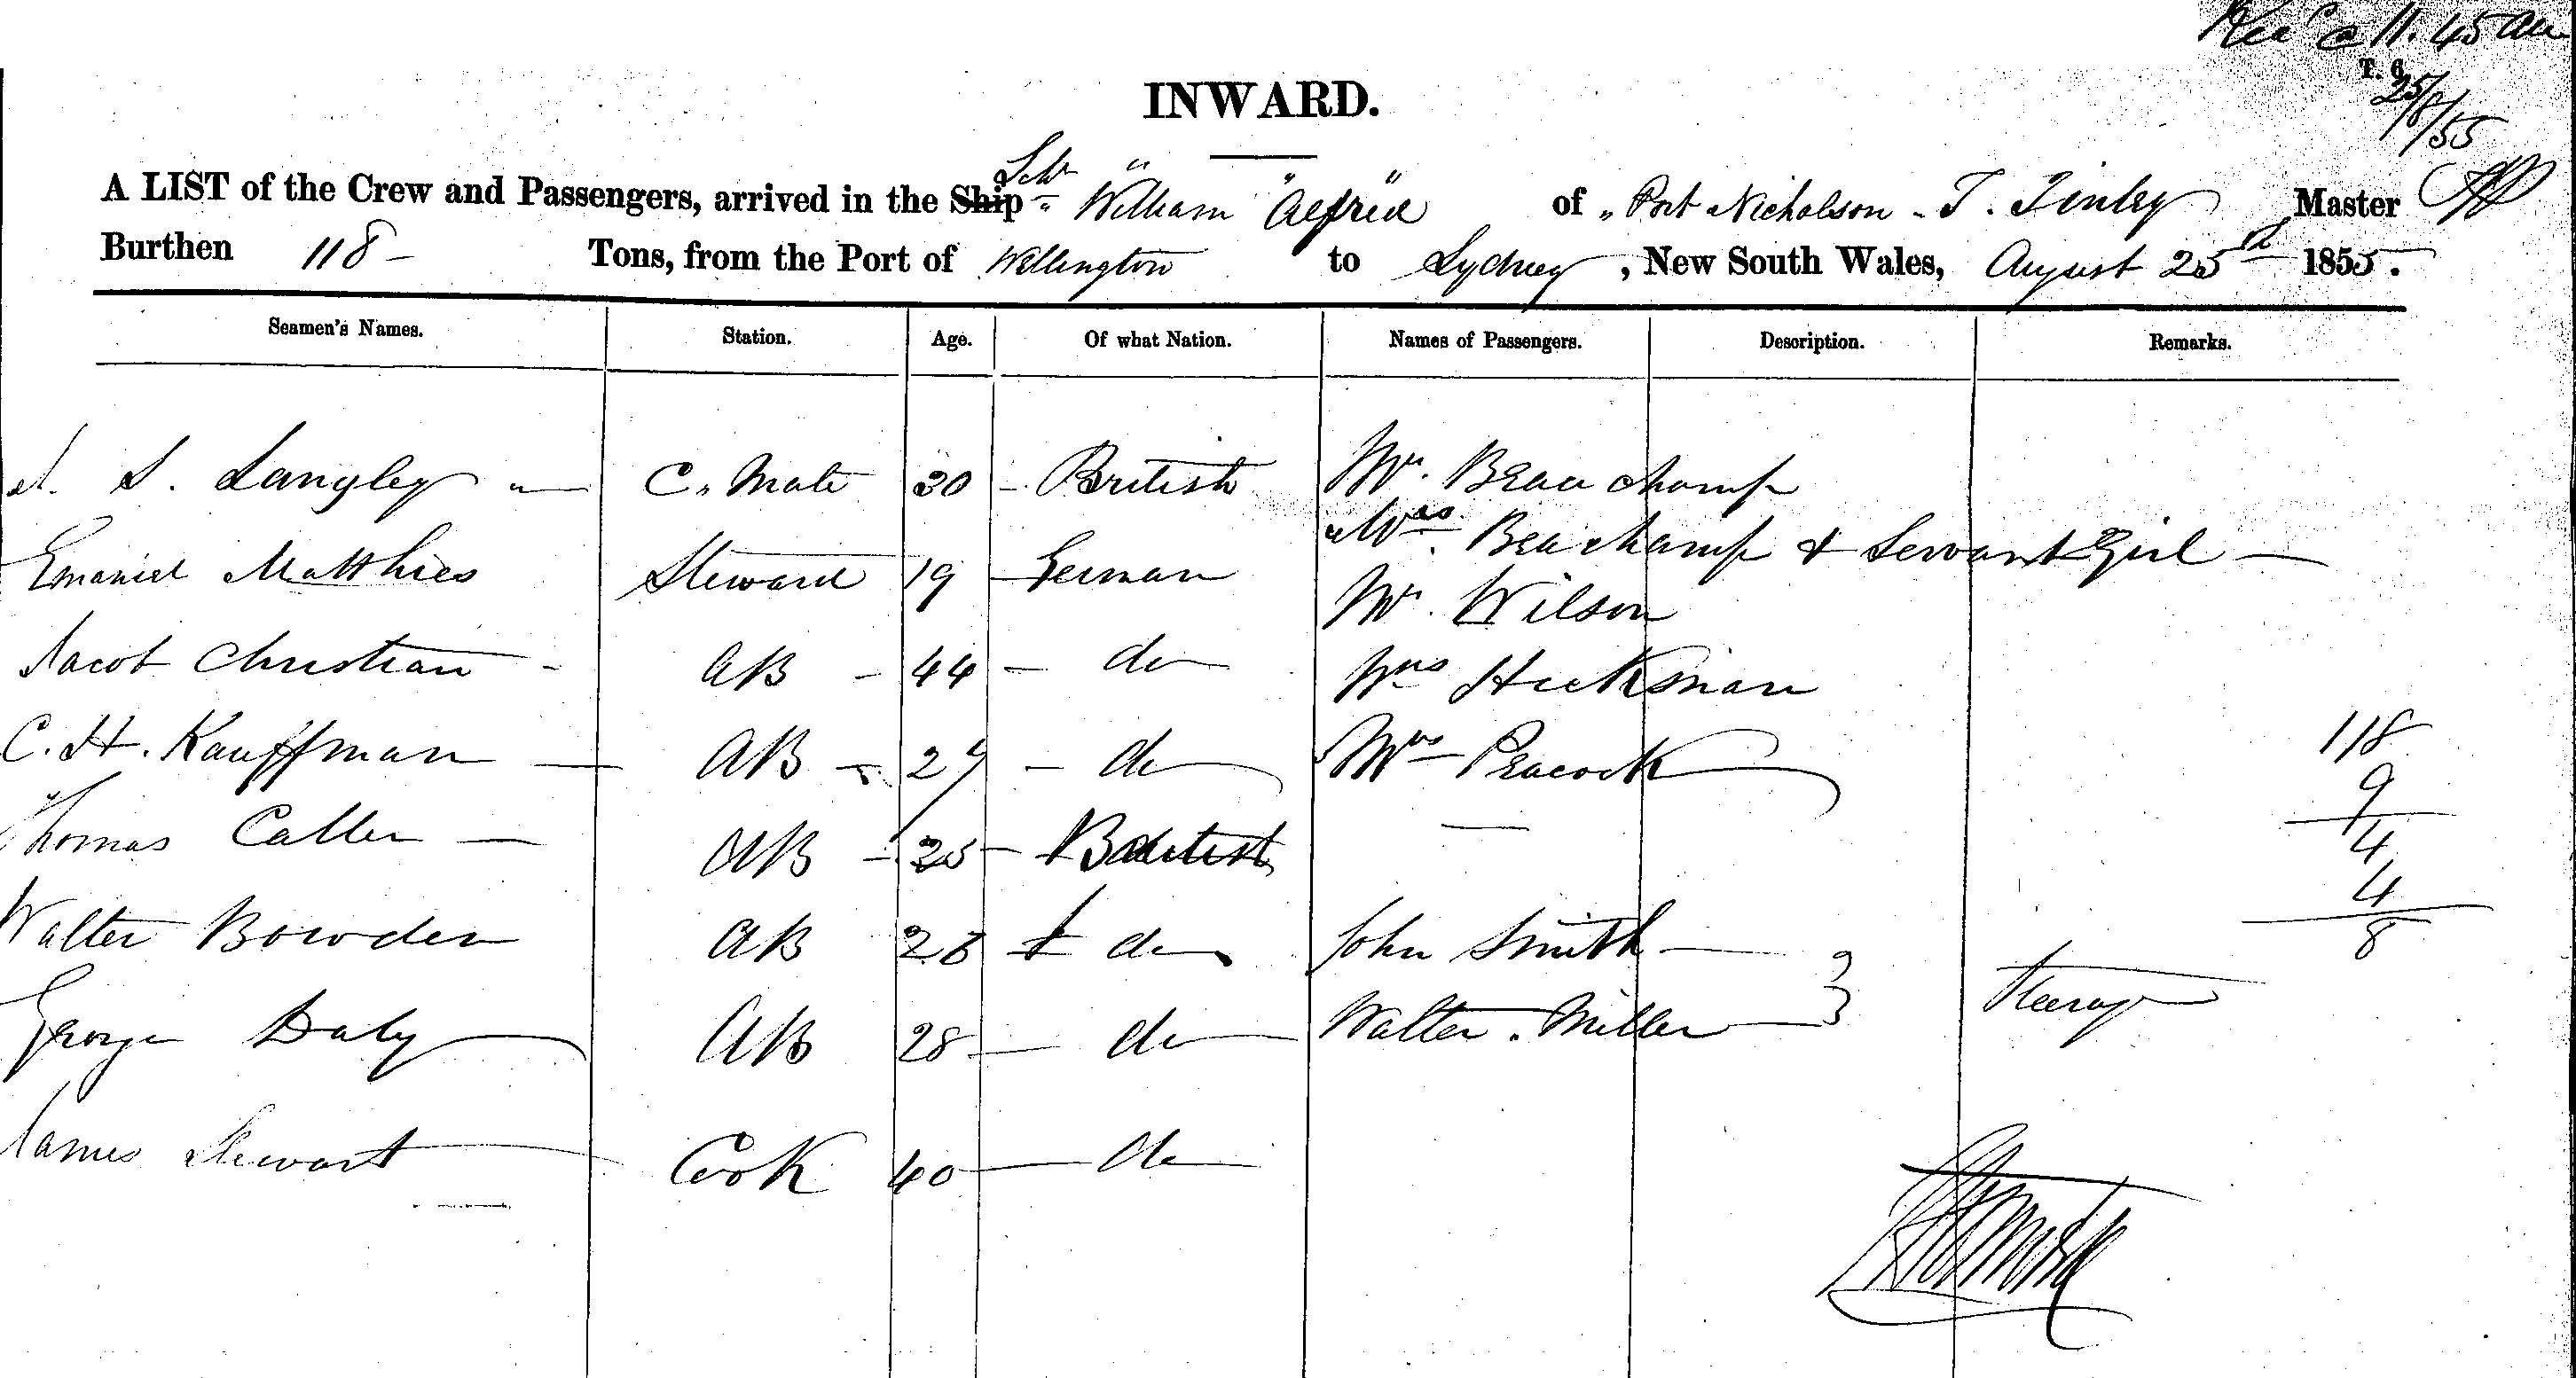 Rec @ 11.45 am
T. 6.
25/8/55
INWARD.
A LIST of the Crew and Passengers, arrived in the Ship Schr "William Alfred" of Port Nicholson - T. Tinley Master
Burthen 118 - Tons, from the Port of Wellington to Sydney, New South Wales, August 25th 1855.
Seamen's Names. Station. Age. Of what Nation. Names of Passengers. Description. Remarks.
S. Langley C. Mate 30 - British Mr. Beauchamp
Mrs. Beachamp & Servant Girl -
Emaniel Matthies Steward 19 - German
Mr. Wilson
Jacob Christian - AB - 44 - do
Mrs Hickman
C. H. Kauffman - AB - 27 - do Mrs Peacock
118
9
Thomas Caller - AB - 25 - British
4
4
8
Walter Bowden AB 28 do John Smith -
George Daly AB 28 - do Walter Miller - Steerage
James Stewart Cook 40 - do